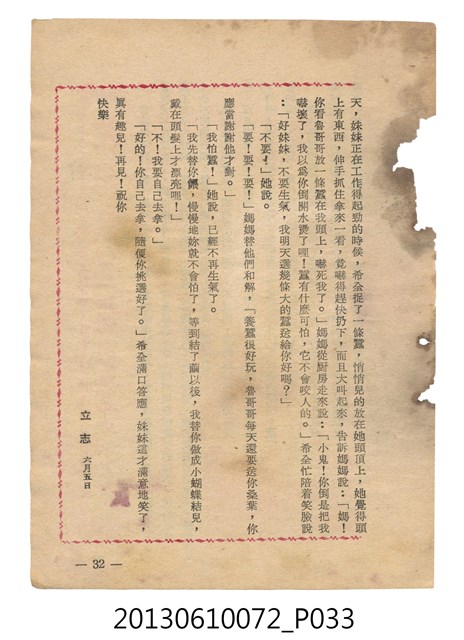 天，妹妹正在工作得起勁的時候，希全捉了一條蠶，悄悄兒的放在她頭頂上，她覺得頭
上有東西，伸手抓住拿來一看，竟嚇得趕快扔下，而且大叫起來，告訴媽媽說：「媽！
你看魯哥哥放一條蠶在我頭上，嚇死我了。」媽媽從厨房走來說：「小鬼！你倒是把我
嚇壞了，我以爲你倒開水燙了哩！蠶有什麼可怕，它不會咬人的。」希全忙陪着笑臉說
：「好妹妹，不要生氣，我明天選幾條大的蠶送給你好嗎？」
「不要！」她說。
「要！要！要！」媽媽替他們和解，「養蠶很好玩，魯哥哥每天還要送你桑葉，你
應當謝謝他才對。」
「我怕蠶！」她說，已經不再生氣了。
「我先替你餵，慢慢地妳就不會怕了，等到結了繭以後，我替你做成小蝴蝶結兒，
戴在頭髮上才漂亮哩！」
「不！我要自己去拿。」
「好的！你自己去拿，隨便你挑選好了。」希全滿口答應，妹妹這才滿意地笑了，
眞有趣兒！再見！祝你
快樂
立志 六月五日
— 32 —
20130610072_P033